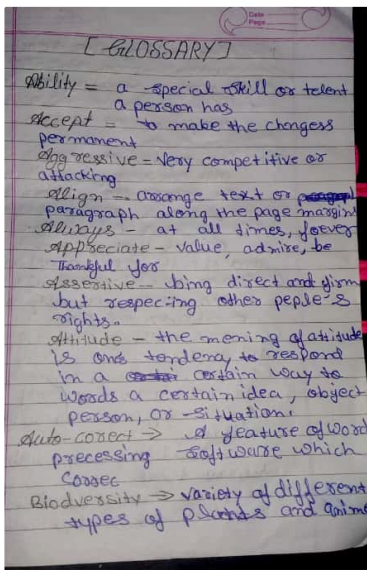 Date
Page
[GLOSSARY]
Ability = a special skill or telent
a person has
Accept = to make the chengess
permanent
Aggressive = Very competitive or
attacking
Align - arrange text or
paragraph along the page margins
Always - at all times, forever
Appreciate - value, admire, be
Thankful for
Assertive - bing direct and firm
but respecting other peple's
rights.
Attitude - the mening of attitude
is ones tendency to respond
in a certain way to
words a certain idea, object
person, or situation.
Auto-corect → A feature of word
precessing software which
correc
Biodversity → variety of different
types of plants and anima